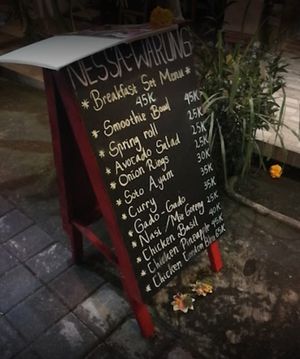 NESSA WARUNG
* Breakfast Set Menu
45K
* Smoothie Bowl 45K
* Spring roll 25K
* Avocado Salad 25K
* Onion Rings 25K
* Soto Ayam 30K
* Curry 35K
* Gado-Gado 35K
* Nasi / Mie Goreng 25K
* Chicken Basil 40K
* Chicken Pineapple 45K
* Chicken Cordon Bleu 65K